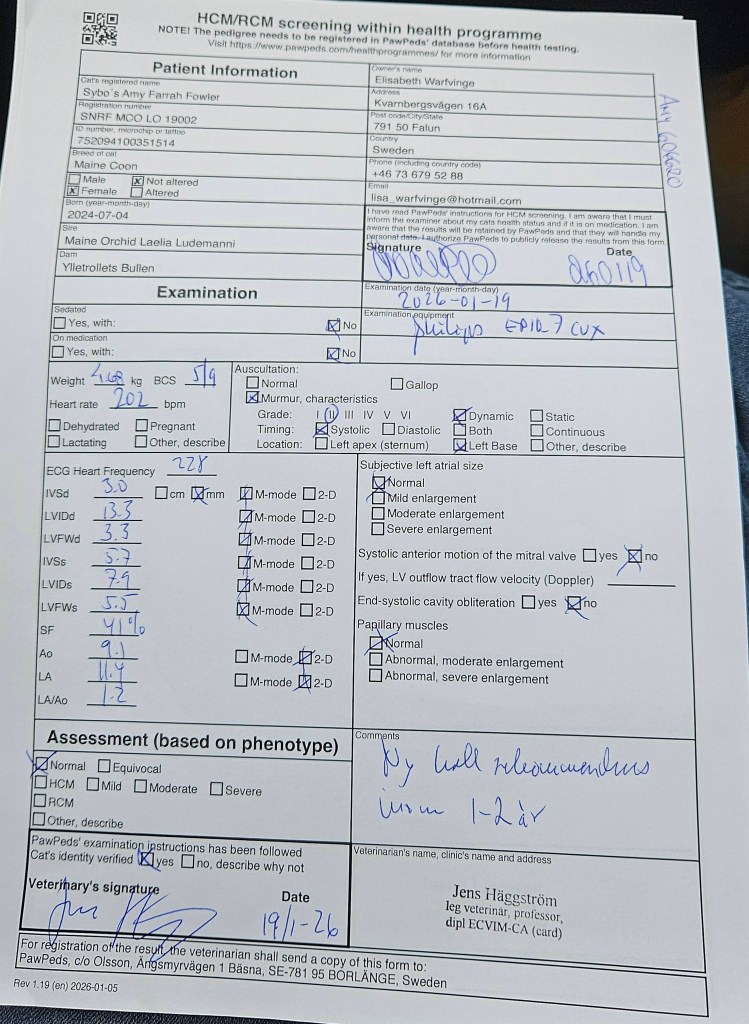 HCM/RCM screening within health programme
NOTE! The pedigree needs to be registered in PawPeds' database before health testing.
Visit https://www.pawpeds.com/healthprogrammes/ for more information
Patient Information
Cat's registered name
Sybo´s Amy Farrah Fowler
Registration number
SNRF MCO LO 19002
ID number, microchip or tattoo
752094100351514
Breed of cat
Maine Coon
Male Not altered
Female Altered
Born (year-month-day)
2024-07-04
Sire
Maine Orchid Laelia Ludemanni
Dam
Ylletrollets Bullen
Owner's name
Elisabeth Warfvinge
Address
Kvarnbergsvägen 16A
Post code/City/State
791 50 Falun
Country
Sweden
Phone (including country code)
+46 73 679 52 88
Email
lisa_warfvinge@hotmail.com
I have read PawPeds' instructions for HCM screening. I am aware that I must
inform the examiner about my cats health status and if it is on medication. I am
aware that the results will be retained by PawPeds and that they will handle my
personal data. I authorize PawPeds to publicly release the results from this form.
Signature Date
260119
Amy 604620
Examination
Sedated
Yes, with: No
On medication
Yes, with: No
Examination date (year-month-day)
2026-01-19
Examination equipment
philips EPIQ 7 CVX
Weight 4,68 kg BCS 5/9
Heart rate 202 bpm
Dehydrated Pregnant
Lactating Other, describe
Auscultation:
Normal Gallop
Murmur, characteristics
Grade: I II III IV V VI Dynamic Static
Timing: Systolic Diastolic Both Continuous
Location: Left apex (sternum) Left Base Other, describe
ECG Heart Frequency 228
IVSd 3.0 cm mm M-mode 2-D
LVIDd 13.3 M-mode 2-D
LVFWd 3.3 M-mode 2-D
IVSs 5.7 M-mode 2-D
LVIDs 7.9 M-mode 2-D
LVFWs 5.5 M-mode 2-D
SF 41%
Ao 9.1 M-mode 2-D
LA 11.4 M-mode 2-D
LA/Ao 1.2
Subjective left atrial size
Normal
Mild enlargement
Moderate enlargement
Severe enlargement
Systolic anterior motion of the mitral valve yes no
If yes, LV outflow tract flow velocity (Doppler)
End-systolic cavity obliteration yes no
Papillary muscles
Normal
Abnormal, moderate enlargement
Abnormal, severe enlargement
Assessment (based on phenotype)
Normal Equivocal
HCM Mild Moderate Severe
RCM
Other, describe
Comments
Ny koll rekommenderas
inom 1-2 år
PawPeds' examination instructions has been followed
Cat's identity verified yes no, describe why not
Veterinary's signature Date
19/1-26
Veterinarian's name, clinic's name and address
Jens Häggström
leg veterinär, professor,
dipl ECVIM-CA (card)
For registration of the result, the veterinarian shall send a copy of this form to:
PawPeds, c/o Olsson, Ängsmyrvägen 1 Bäsna, SE-781 95 BORLÄNGE, Sweden
Rev 1.19 (en) 2026-01-05